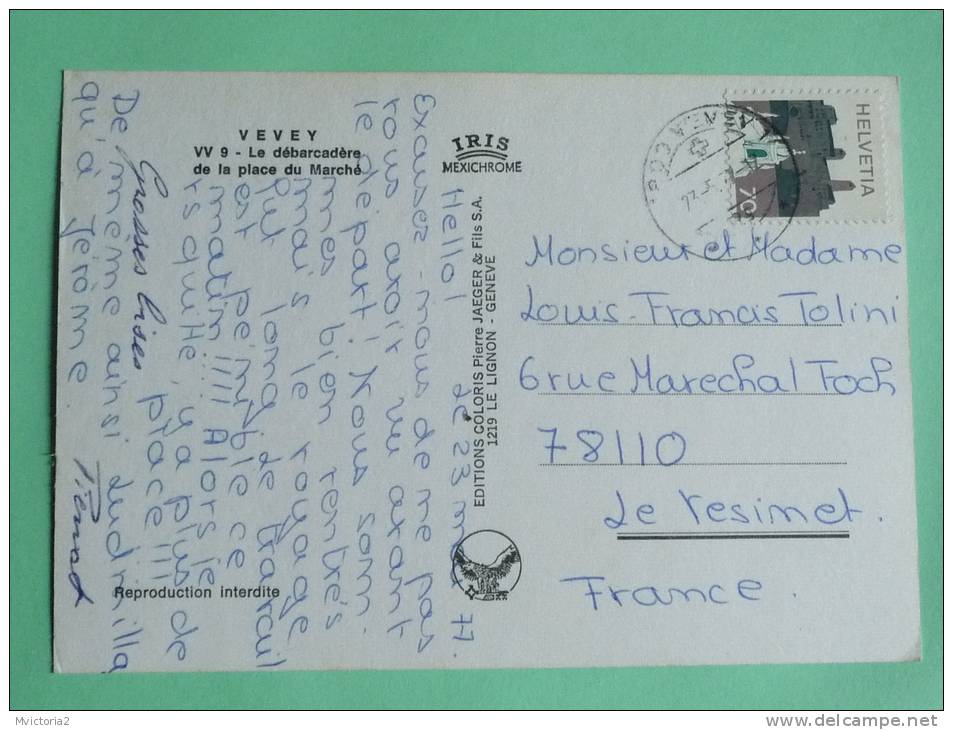 VEVEY
VV 9 - Le débarcadère
de la place du Marché
IRIS
MEXICHROME
HELVETIA
70
EDITIONS COLORIS Pierre JAEGER & Fils S.A.
1219 LE LIGNON - GENEVE
Reproduction interdite
Le 23 77.
Hello!
Excusez-nous de ne pas
vous avoir vu avant
le départ! Nous som.
mes bien rentrés
mais le voyage
fut long, le travail
est pénible ce
matin!!!! Alors je
vs quitte, y'a plus de
place!!!
Grosses bises
De même ainsi Ludmilla
qu'à Jérôme.
Monsieur et Madame
Louis-Francis Tolini
6 rue Marechal Foch
78110
Le Vesinet.
France.
Mvictoria2
www.delcampe.net